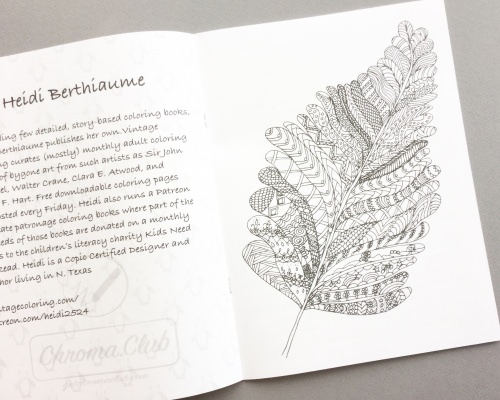 Heidi Berthiaume
ding few detailed, story-based coloring books,
Berthiaume publishes her own. Vintage
ng curates (mostly) monthly adult coloring
of bygone art from such artists as Sir John
el, Walter Crane, Clara E. Atwood, and
F. Hart. Free downloadable coloring pages
osted every Friday. Heidi also runs a Patreon
ate patronage coloring books where part of the
eeds of those books are donated on a monthly
s to the children's literacy charity Kids Need
Read. Heidi is a Copic Certified Designer and
hor living in N. Texas
tagecoloring.com/
treon.com/heidi2524
Chroma.Club